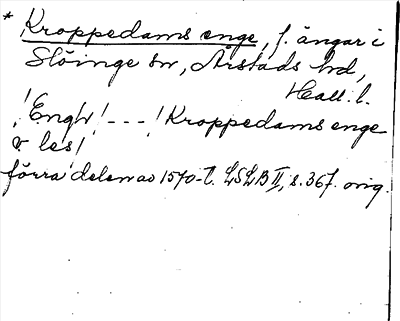 * Kroppedams enge, f. ängar i
Slöinge sn, Årstads hd,
Hall. l.
! Engh! - - - ! Kroppedams enge
& les!
förra delen av 1570-t. LSLB II, s. 367. orig.